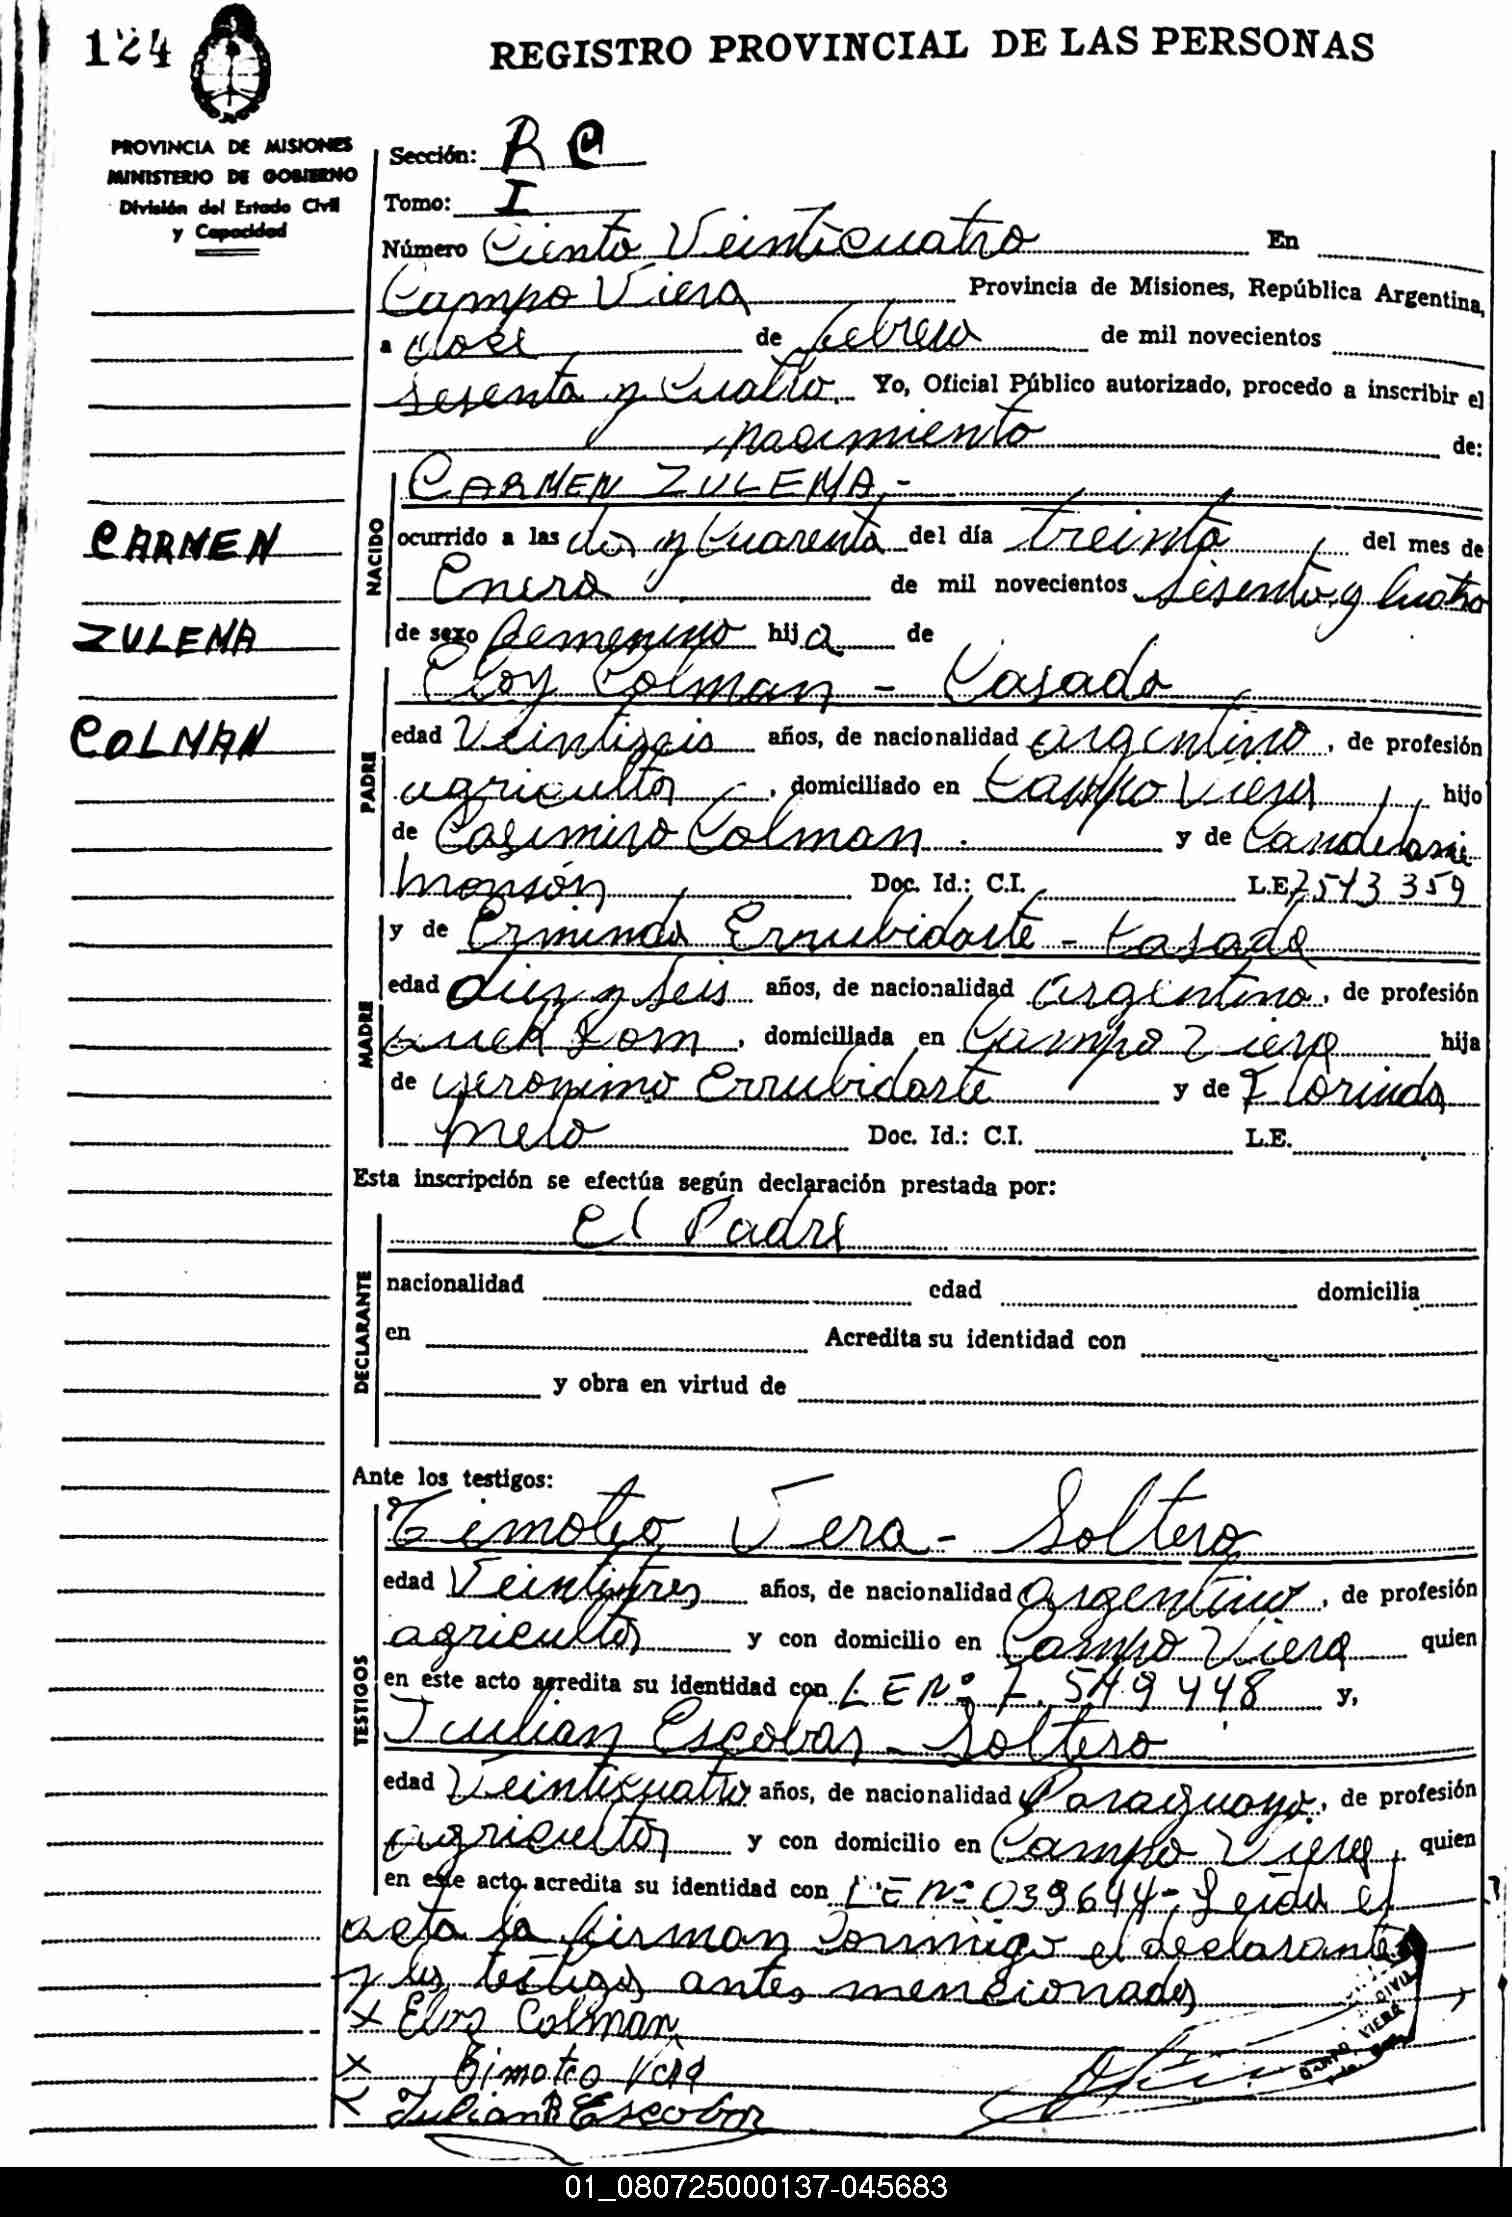 124
REGISTRO PROVINCIAL DE LAS PERSONAS
PROVINCIA DE MISIONES
MINISTERIO DE GOBIERNO
División del Estado Civil
y Capacidad
Sección: R C
Tomo: I
Número Ciento Veinticuatro En
Campo Viera Provincia de Misiones, República Argentina,
a doce de febrero de mil novecientos
sesenta y cuatro. Yo, Oficial Público autorizado, procedo a inscribir el
nacimiento de:
CARMEN
ZULEMA
COLMAN
NACIDO
CARMEN ZULEMA.-
ocurrido a las dos y cuarenta del día treinta del mes de
Enero de mil novecientos sesenta y cuatro
de sexo femenino hija de
PADRE
Eloy Colman - Casado
edad Veintiseis años, de nacionalidad argentino, de profesión
agricultor, domiciliado en Campo Viera hijo
de Casimiro Colman y de Candelari
Monsón Doc. Id.: C.I. L.E. 7513359
MADRE
y de Erminda Errubidarte - Casada
edad diez y seis años, de nacionalidad argentina, de profesión
domiciliada en Campo Viera hija
de Geronimo Errubidarte y de Florinda
Melo Doc. Id.: C.I. L.E.
Esta inscripción se efectúa según declaración prestada por:
DECLARANTE
El Padre
nacionalidad edad domicilia
en Acredita su identidad con
y obra en virtud de
Ante los testigos:
TESTIGOS
Timoteo Vera - Soltero
edad Veintitres años, de nacionalidad argentino, de profesión
agricultor y con domicilio en Campo Viera quien
en este acto acredita su identidad con L E Nº 7.549448 y,
Julian Escobar - Soltero
edad Veinticuatro años, de nacionalidad Paraguayo, de profesión
agricultor y con domicilio en Campo Viera, quien
en este acto acredita su identidad con L E Nº 039644 - Leida el
acta la firman conmigo el declarante
y los testigos antes mencionados
x Eloy Colman
x Timoteo Vera
x Julian R Escobar
CIVIL
CAMPO VIERA
01_080725000137-045683